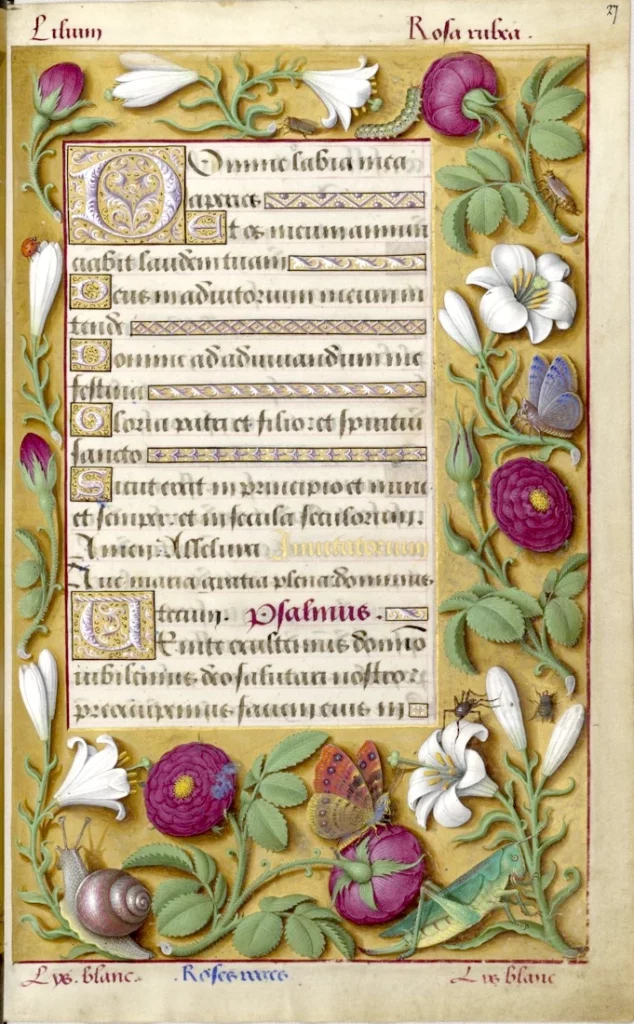 27
Lilium Rosa rubea.
Domine labia mea
aperies
Et os meum annun
ciabit laudem tuam
Deus in adiutorium meum in
tende
Domine ad adiuuandum me
festina
Gloria patri et filio: et spiritui
sancto
Sicut erat in principio et nunc
et semper: et in secula seculorum.
Amen. Alleluya Inuitatorium
Aue maria gratia plena dominus
tecum. Psalmus.
Uenite exultemus domino
iubilemus deo salutari nostro:
preocupemus faciem eius in
Lys. blanc. Roses Lys blanc